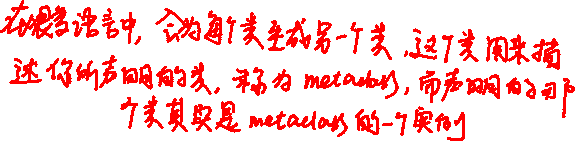 在很多语言中,会为每个类生成另一个类,这个类用来描
述你所声明的类,称为metaclass,而声明的那
个类其实是metaclass的一个实例